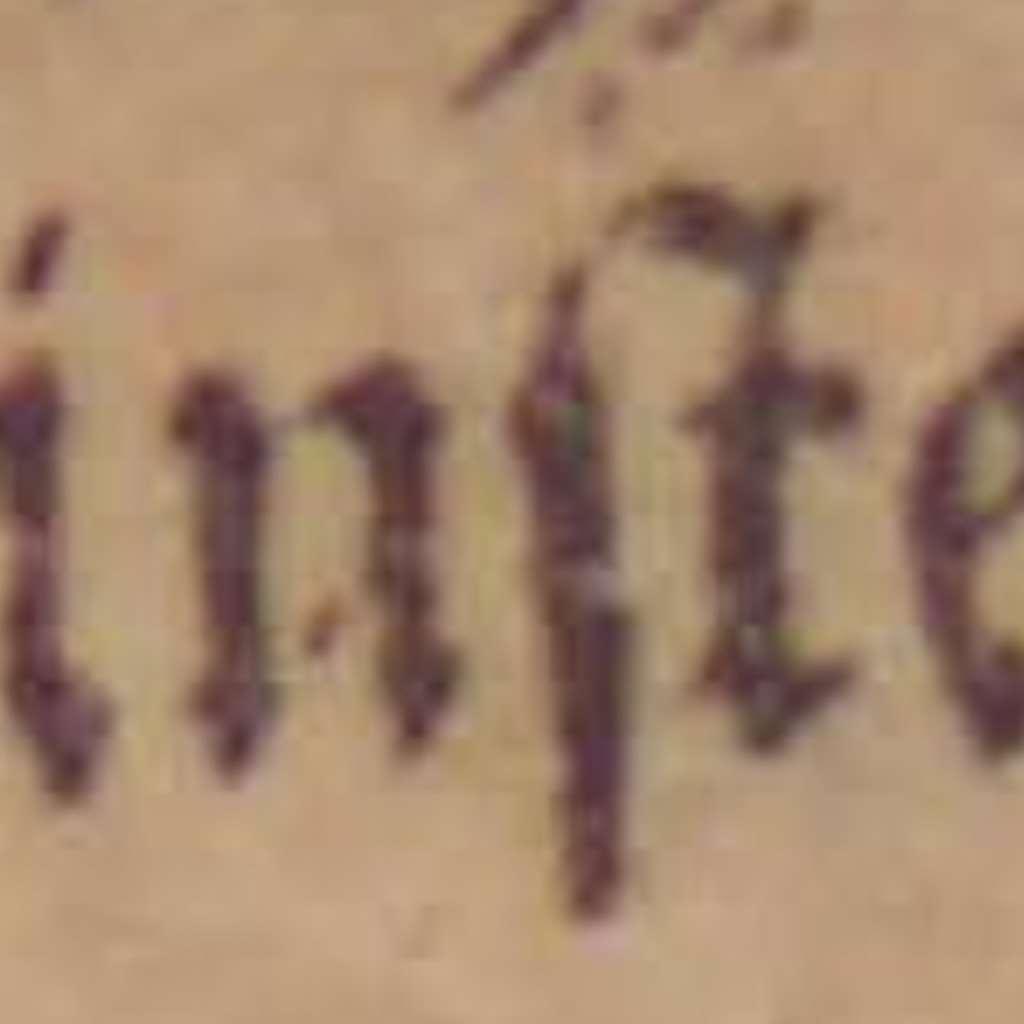 inſte